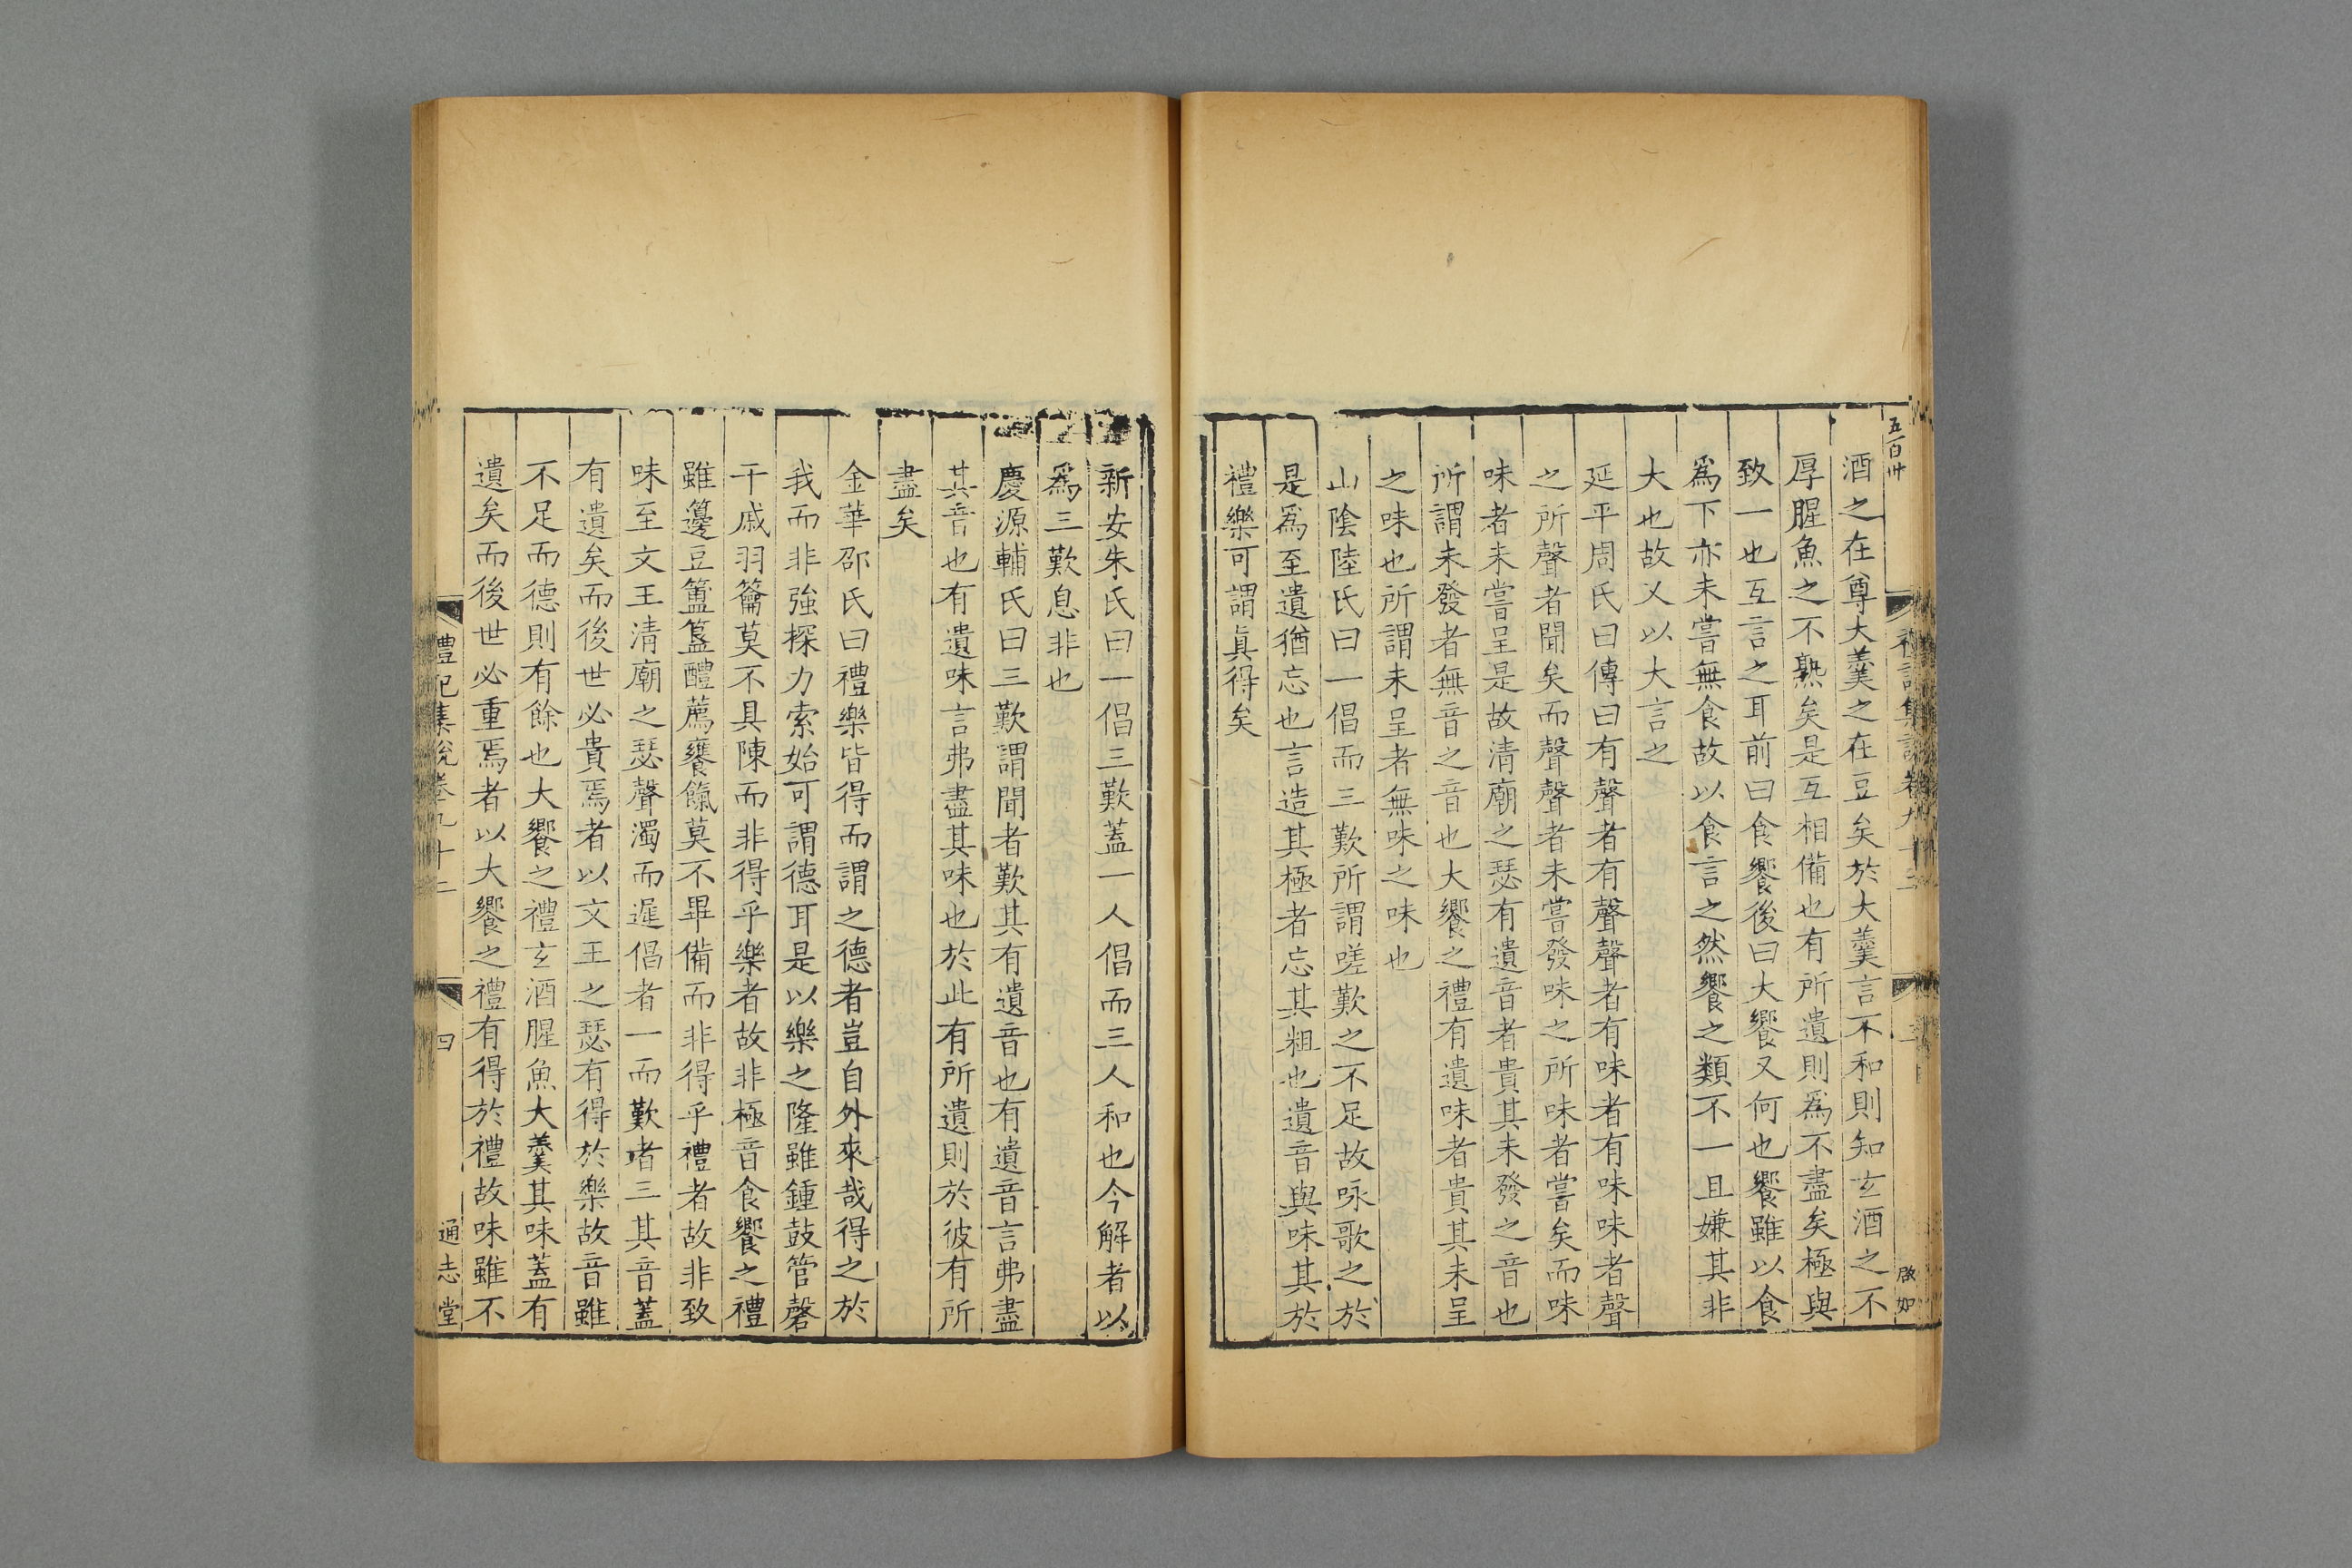 五百卅
酒之在尊大羹之在豆矣於大羹言不和則知玄酒之不
厚腥魚之不熟矣是互相備也有所遺則爲不盡矣極與
致一也互言之耳前曰食饗後曰大饗又何也饗雖以食
爲下亦未嘗無食故以食言之然饗之類不一且嫌其非
大也故又以大言之
延平周氏曰傳曰有聲者有聲聲者有味者有味味者聲
之所聲者聞矣而聲聲者未嘗發味之所味者嘗矣而味
味者未嘗呈是故清廟之瑟有遺音者貴其未發之音也
所謂未發者無音之音也大饗之禮有遺味者貴其未呈
之味也所謂未呈者無味之味也
山陰陸氏曰一倡而三歎所謂嗟歎之不足故咏歌之於
是爲至遺猶忘也言造其極者忘其粗也遺音與味其於
禮樂可謂眞得矣
啟如
新安朱氏曰一倡三歎蓋一人倡而三人和也今解者以
爲三歎息非也
慶源輔氏曰三歎謂聞者歎其有遺音也有遺音言弗盡
其音也有遺味言弗盡其味也於此有所遺則於彼有所
盡矣
金華邵氏曰禮樂皆得而謂之德者豈自外來哉得之於
我而非強探力索始可謂德耳是以樂之隆雖鍾鼓管磬
干戚羽籥莫不具陳而非得乎樂者故非極音食饗之禮
雖籩豆簠簋醴薦饔餼莫不畢備而非得乎禮者故非致
味至文王清廟之瑟聲濁而遲倡者一而歎者三其音蓋
有遺矣而後世必貴焉者以文王之瑟有得於樂故音雖
不足而德則有餘也大饗之禮玄酒腥魚大羹其味蓋有
遺矣而後世必重焉者以大饗之禮有得於禮故味雖不
禮記集說卷九十二
四
通志堂